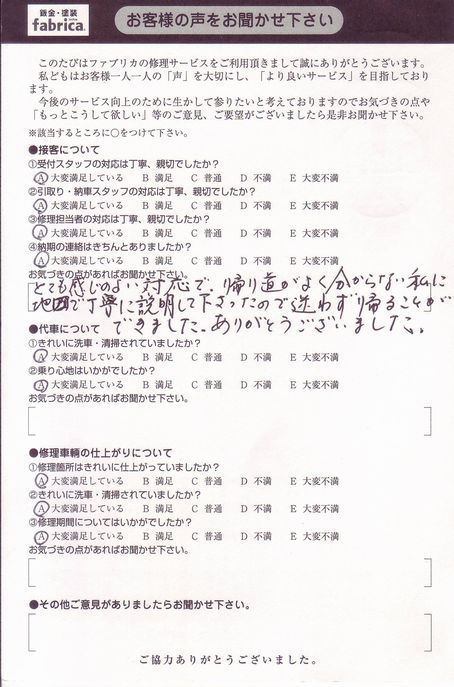 鈑金・塗装
fabrica.
お客様の声をお聞かせ下さい
このたびはファブリカの修理サービスをご利用頂きまして誠にありがとうございます。
私どもはお客様一人一人の「声」を大切にし、「より良いサービス」を目指しており
ます。
今後のサービス向上のために生かして参りたいと考えておりますのでお気づきの点や
「もっとこうして欲しい」等のご意見、ご要望がございましたら是非お聞かせ下さい。
※該当するところに○をつけて下さい。
●接客について
①受付スタッフの対応は丁寧、親切でしたか？
A 大変満足している B 満足 C 普通 D 不満 E 大変不満
②引取り・納車スタッフの対応は丁寧、親切でしたか？
A 大変満足している B 満足 C 普通 D 不満 E 大変不満
③修理担当者の対応は丁寧、親切でしたか？
A 大変満足している B 満足 C 普通 D 不満 E 大変不満
④納期の連絡はきちんとありましたか？
A 大変満足している B 満足 C 普通 D 不満 E 大変不満
お気づきの点があればお聞かせ下さい。
とても感じのよい対応で、帰り道がよく分からない私に
地図で丁寧に説明して下さったので迷わず帰ることが
できました。ありがとうございました。
●代車について
①きれいに洗車・清掃されていましたか？
A 大変満足している B 満足 C 普通 D 不満 E 大変不満
②乗り心地はいかがでしたか？
A 大変満足している B 満足 C 普通 D 不満 E 大変不満
お気づきの点があればお聞かせ下さい。
●修理車輌の仕上がりについて
①修理箇所はきれいに仕上がっていましたか？
A 大変満足している B 満足 C 普通 D 不満 E 大変不満
②きれいに洗車・清掃されていましたか？
A 大変満足している B 満足 C 普通 D 不満 E 大変不満
③修理期間についてはいかがでしたか？
A 大変満足している B 満足 C 普通 D 不満 E 大変不満
お気づきの点があればお聞かせ下さい。
●その他ご意見がありましたらお聞かせ下さい。
ご協力ありがとうございました。